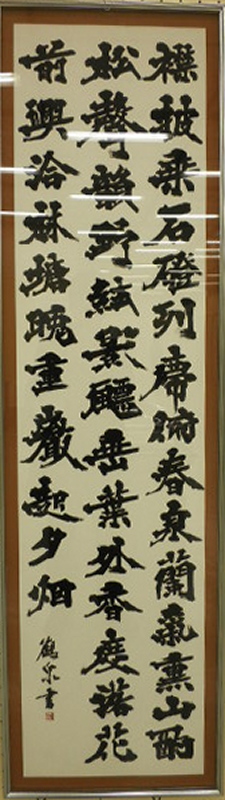 襟披乗石磴列席俯春泉蘭氣薰山酌
松聲韻野絃影飄垂葉外香度落花
前興洽林塘晩重巖起夕烟
鶴泉書